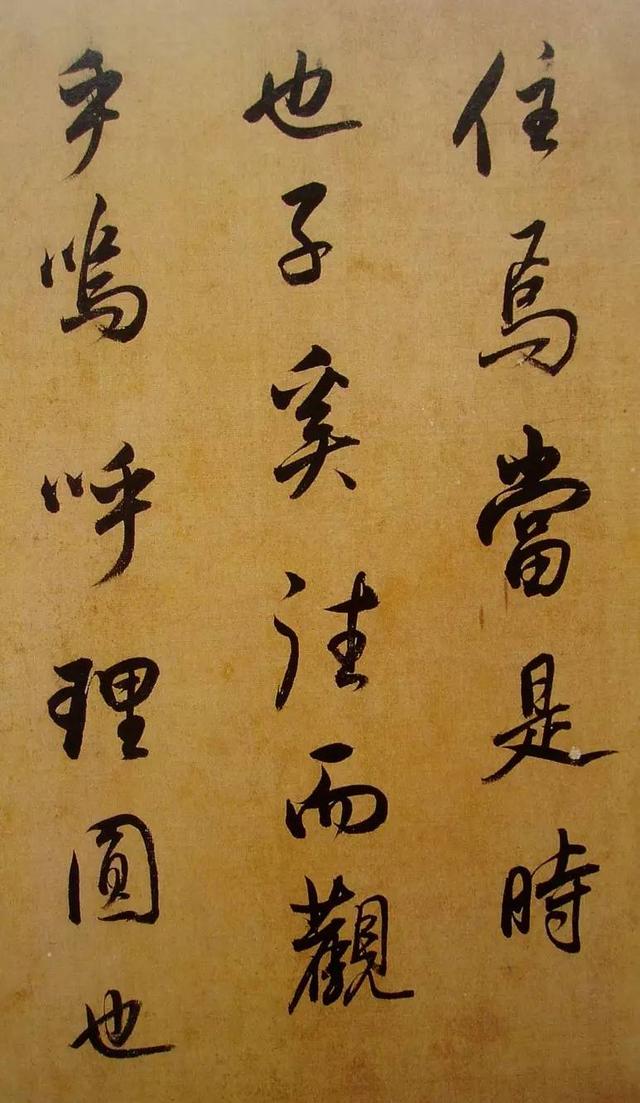 住焉當是時
也子奚往而觀
乎嗚呼理圓也